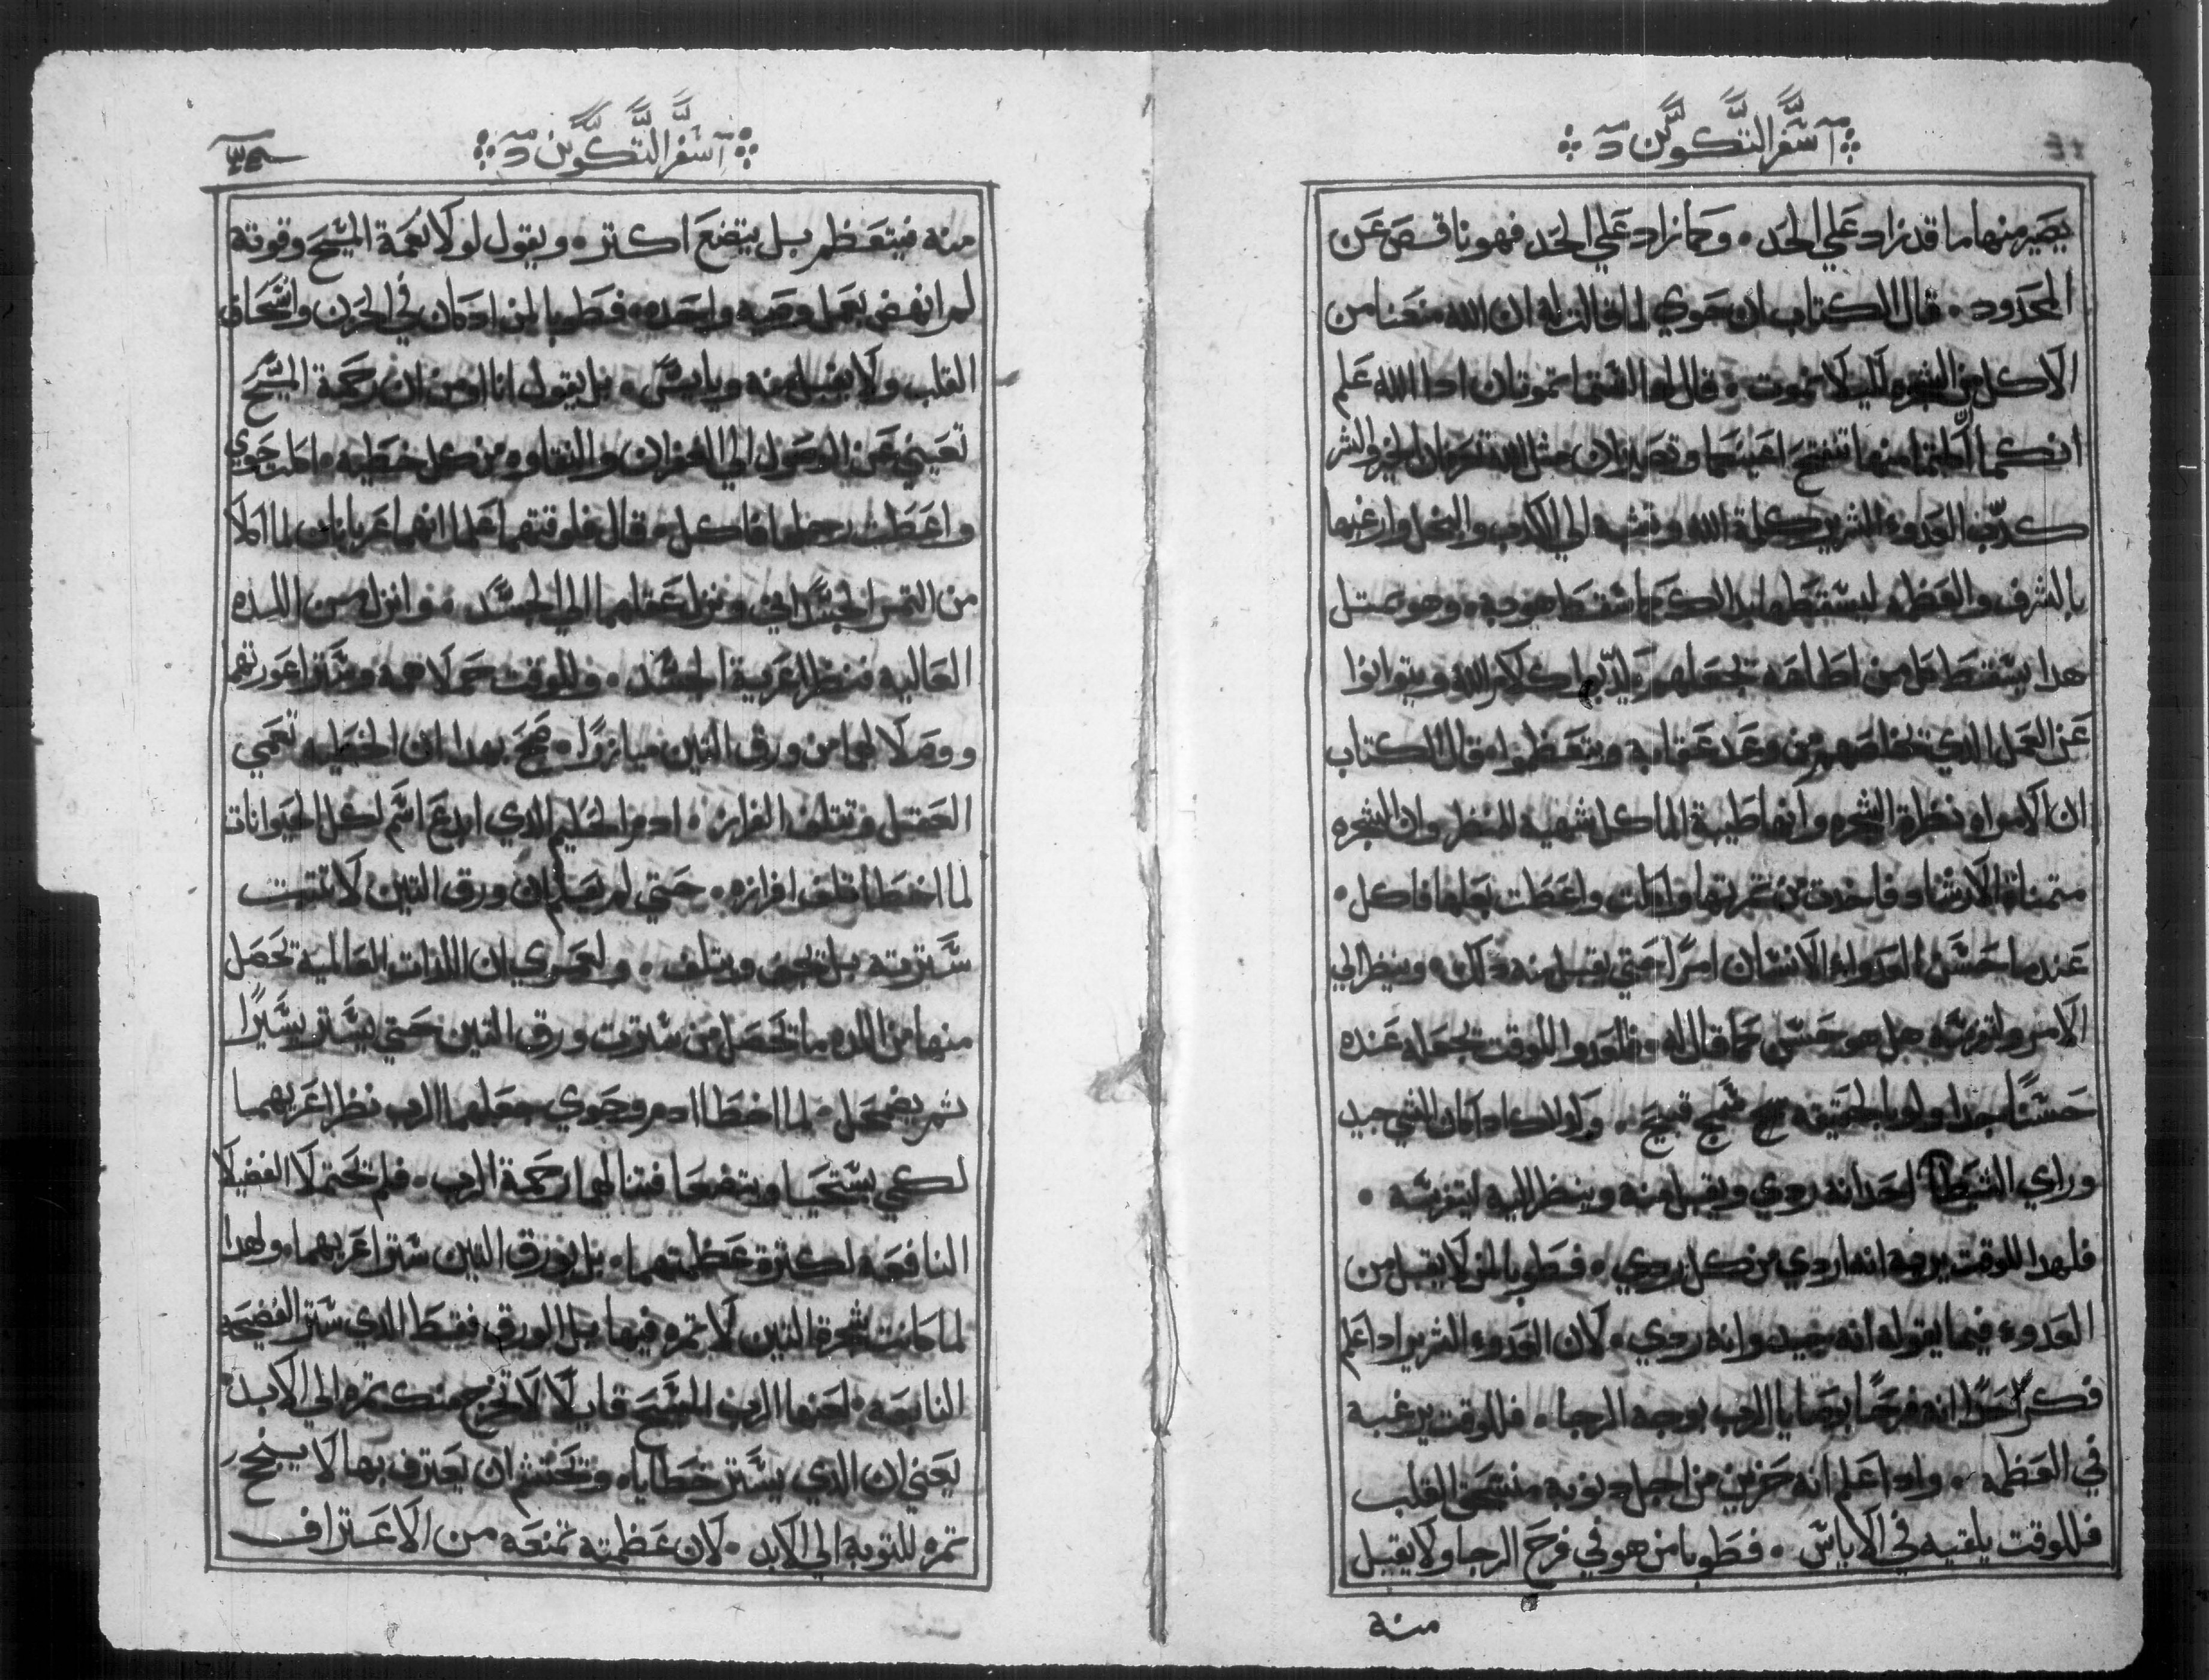 سفر التكوين
يصير منها ما قد زاد علي الحد. وكما زاد علي الحد فهو ناقص عن
المحدود. قال الكتاب ان حوي لما قالت له ان الله منعنا من
الاكل من الشجره ليلا نموت. قال لها لستما تموتان ادا الله علم
انكما ادا اكلتما منها تنفتح اعينكما وتصيران مثل الله تعرفان الخير والشر
كدب العدوء الشرير كلمة الله ونسبه الي الكدب والبخل وارغبها
بالشرف والعظمه ليسقطها بدلك كما سقط هو به. وهو بمتل
هدا يسقط كل من اطاعه يجعلهم يكدبوا كلام الله ويتوانوا
عن العمل الدي يخلصهم من وعد عقابه ويتعظموا. قال الكتاب
ان الامراه نظرة الشجره وانها طيبة الماكل شهية للنظر وان الشجره
متمناة فاخدت من تمرتها واكلت واعطت بعلها فاكل.
عندما حسن العدواء الانسان امرًا حتي يقبل منه دلك. وينظر الي
الامر ولتزينه هل هو حسن كما قال له. فالعدوا للوقت يجعله عنده
حسنًا جدا ولو بالحقيقه سمج قبيح. وكدلك ادا كان الشي جيد
وراي الشيطان احد انه ردي ويقبل منه وينظر اليه
فلهدا للوقت يريه انه اردي من كل ردي. فطوبا لمن لا يقبل من
العدوء فيما يقوله انه جيد وانه ردي. لان العدوء الشرير ادا علم
فكر احدًا انه فرحًا بوصايا الرب بوجه الرجا. فللوقت يرغبه
في العظمه. وادا علم انه حزين من اجل دنوبه منسحق القلب
فللوقت يلقيه في الاياس. فطوبا من هو في فرح الرجا ولا يقبل
منه
سفر التكوين
منه فيتعظم بل يتضع اكتر. ويقول لولا نعمة المسيح وقوته
لم انهض بعمل وصيه واحده. فطوبا لمن ادا كان في الحزن وانسحاق
القلب ولا يقبل منه وياس. بل يقول انا اومن ان رحمة المسيح
تعينني عن الوصول الي الغفران والنقاوه من كل خطيه. اكلت حوي
واعطت رجلها فاكل. قال فلوقتهما علما انهما عريانان لما اكلا
من التمر الجسداني ونزل عقلهما الي الجسد. فوا نزل من اللده
العاليه فنظرا عرية الجسد. وللوقت حملا همه وسترا عورتهما
ووصلا لهما من ورق التين ميازرًا. صح بهدا ان الخطيه تعمي
العقل وتتلف الفرازه. ادم الحكيم الدي ابدع اسم لكل الحيوانات
لما اخطا تلف افرازه. حتي لم يعلم ان ورق التين لا تتبت
سترته بل تجف ويتلف. ولعمري ان اللدات العالمية تحصل
منها من اللده ما تحصل من سترت ورق التين حتي يستر يسيرًا
ثم يضمحل. لما اخطا ادم وحوي جعلهما الرب نظرا عريهما
لكي يستحيا ويتضعا فتنالهما رحمة الرب. فلم تحتملا الفضيلا
النافعه لكترة عظمتهما. بل بورق التين سترا عريهما. ولهدا
لما كانت شجرة التين لا تمره فيها بل الورق فقط الدي ستر الفضيحه
النابعه. لعنها الرب المسيح قايلًا لا تخرج منك تمره الي الابد
يعني ان الدي يستر خطاياه وتحتشم ان يعترف بها لا ينجح
تمره للتوبه الي الابد. لان عظمته تمنعه من الاعتراف